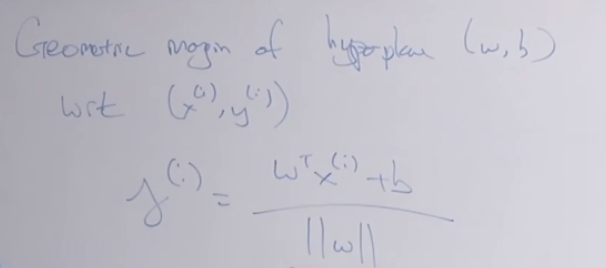 Geometric margin of hyperplane (w, b)
wrt (x⁽ⁱ⁾, y⁽ⁱ⁾)
γ⁽ⁱ⁾ = (wᵀx⁽ⁱ⁾ + b) / ||w||